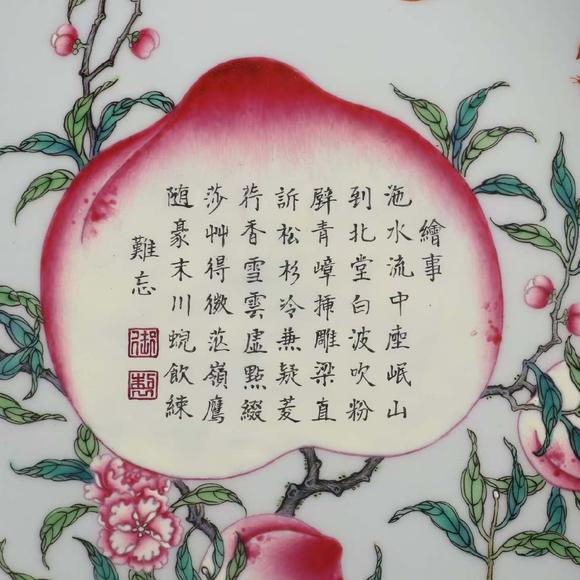 繪事
沲水流中座岷山
到北堂白波吹粉
壁青嶂揷雕梁直
訴松杉冷兼疑菱
荇香雪雲虛點綴
莎艸得微茫嶺鷹
隨豪末川蜺飲練
難忘
御
製